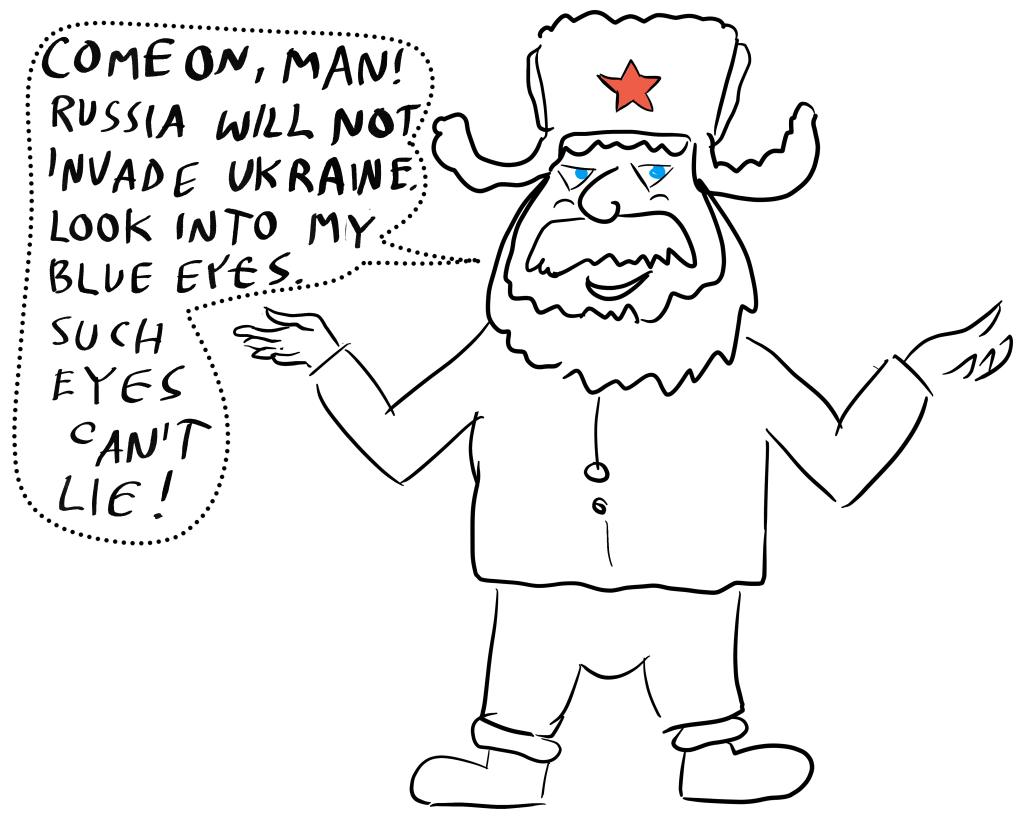 COME ON, MAN!
RUSSIA WILL NOT
INVADE UKRAINE.
LOOK INTO MY
BLUE EYES.
SUCH
EYES
CAN'T
LIE!